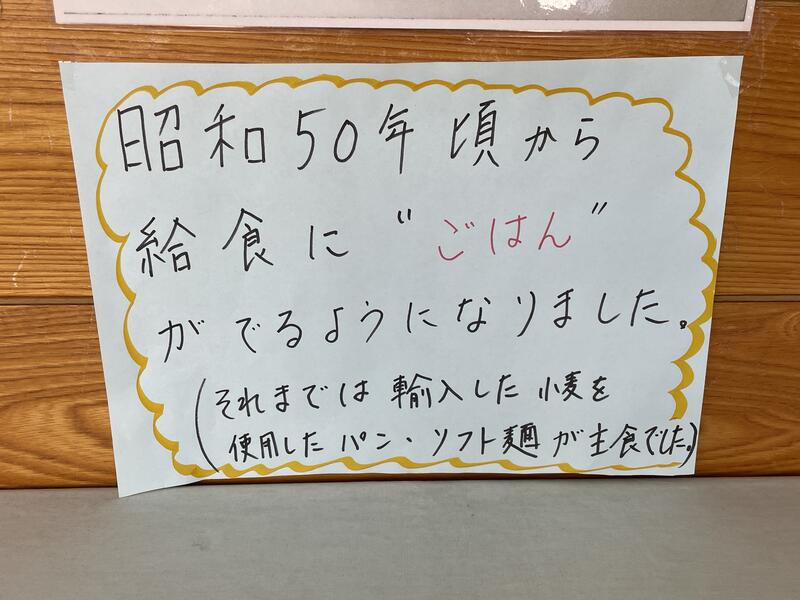 昭和50年頃から
給食に"ごはん"
がでるようになりました。
(それまでは輸入した小麦を
使用したパン・ソフト麺が主食でした。)